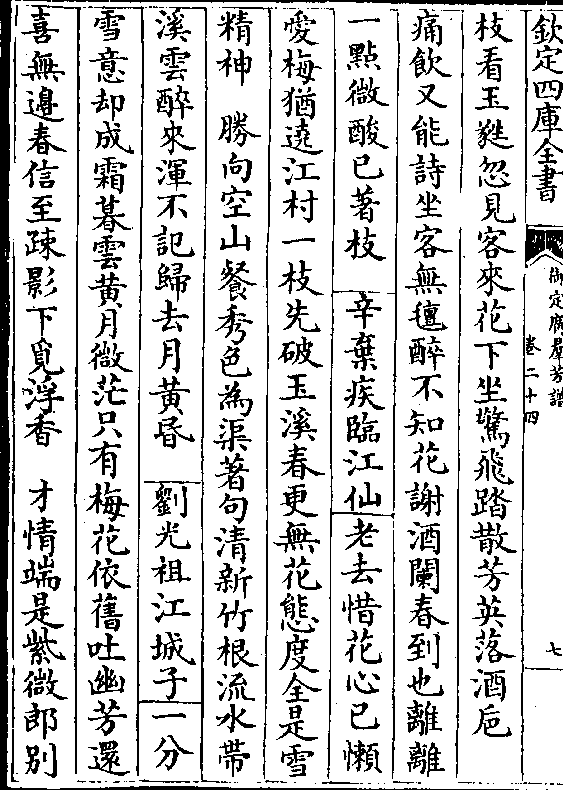 欽定四庫全書
御定廣羣芳譜
卷二十四
七
枝看玉蕤忽見客來花下坐驚飛踏散芳英落酒巵
痛飲又能詩坐客無氊醉不知花謝酒闌春到也離離
一點微酸已著枝 辛棄疾臨江仙老去惜花心已懶
愛梅猶遶江村一枝先破玉溪春更無花態度全是雪
精神 勝向空山餐秀色為渠著句清新竹根流水帶
溪雲醉來渾不記歸去月黃昏 劉光祖江城子一分
雪意却成霜暮雲黃月微茫只有梅花依舊吐幽芳還
喜無邉春信至疎影下覓浮香 才情端是紫微郎别